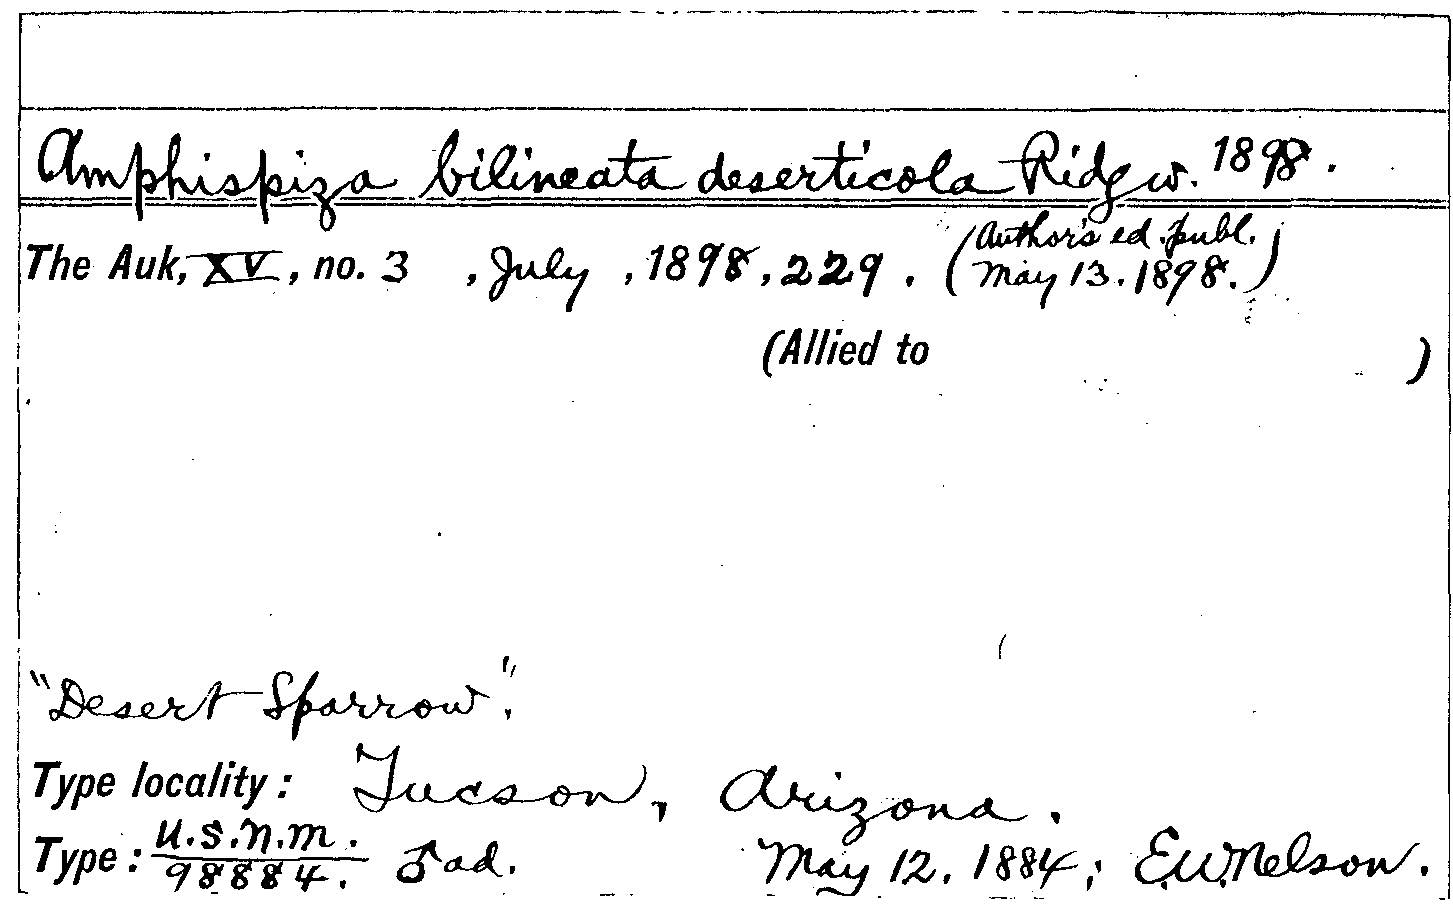 Amphispiza bilineata deserticola Ridgw. 1898.
The Auk, XV, no. 3 , July , 1898, 229. (Author's ed. publ. May 13. 1898.)
(Allied to )
"Desert Sparrow".
Type locality: Tucson, Arizona.
Type: U.S.N.M. 98884. ♂ ad. May 12, 1884; E.W. Nelson.